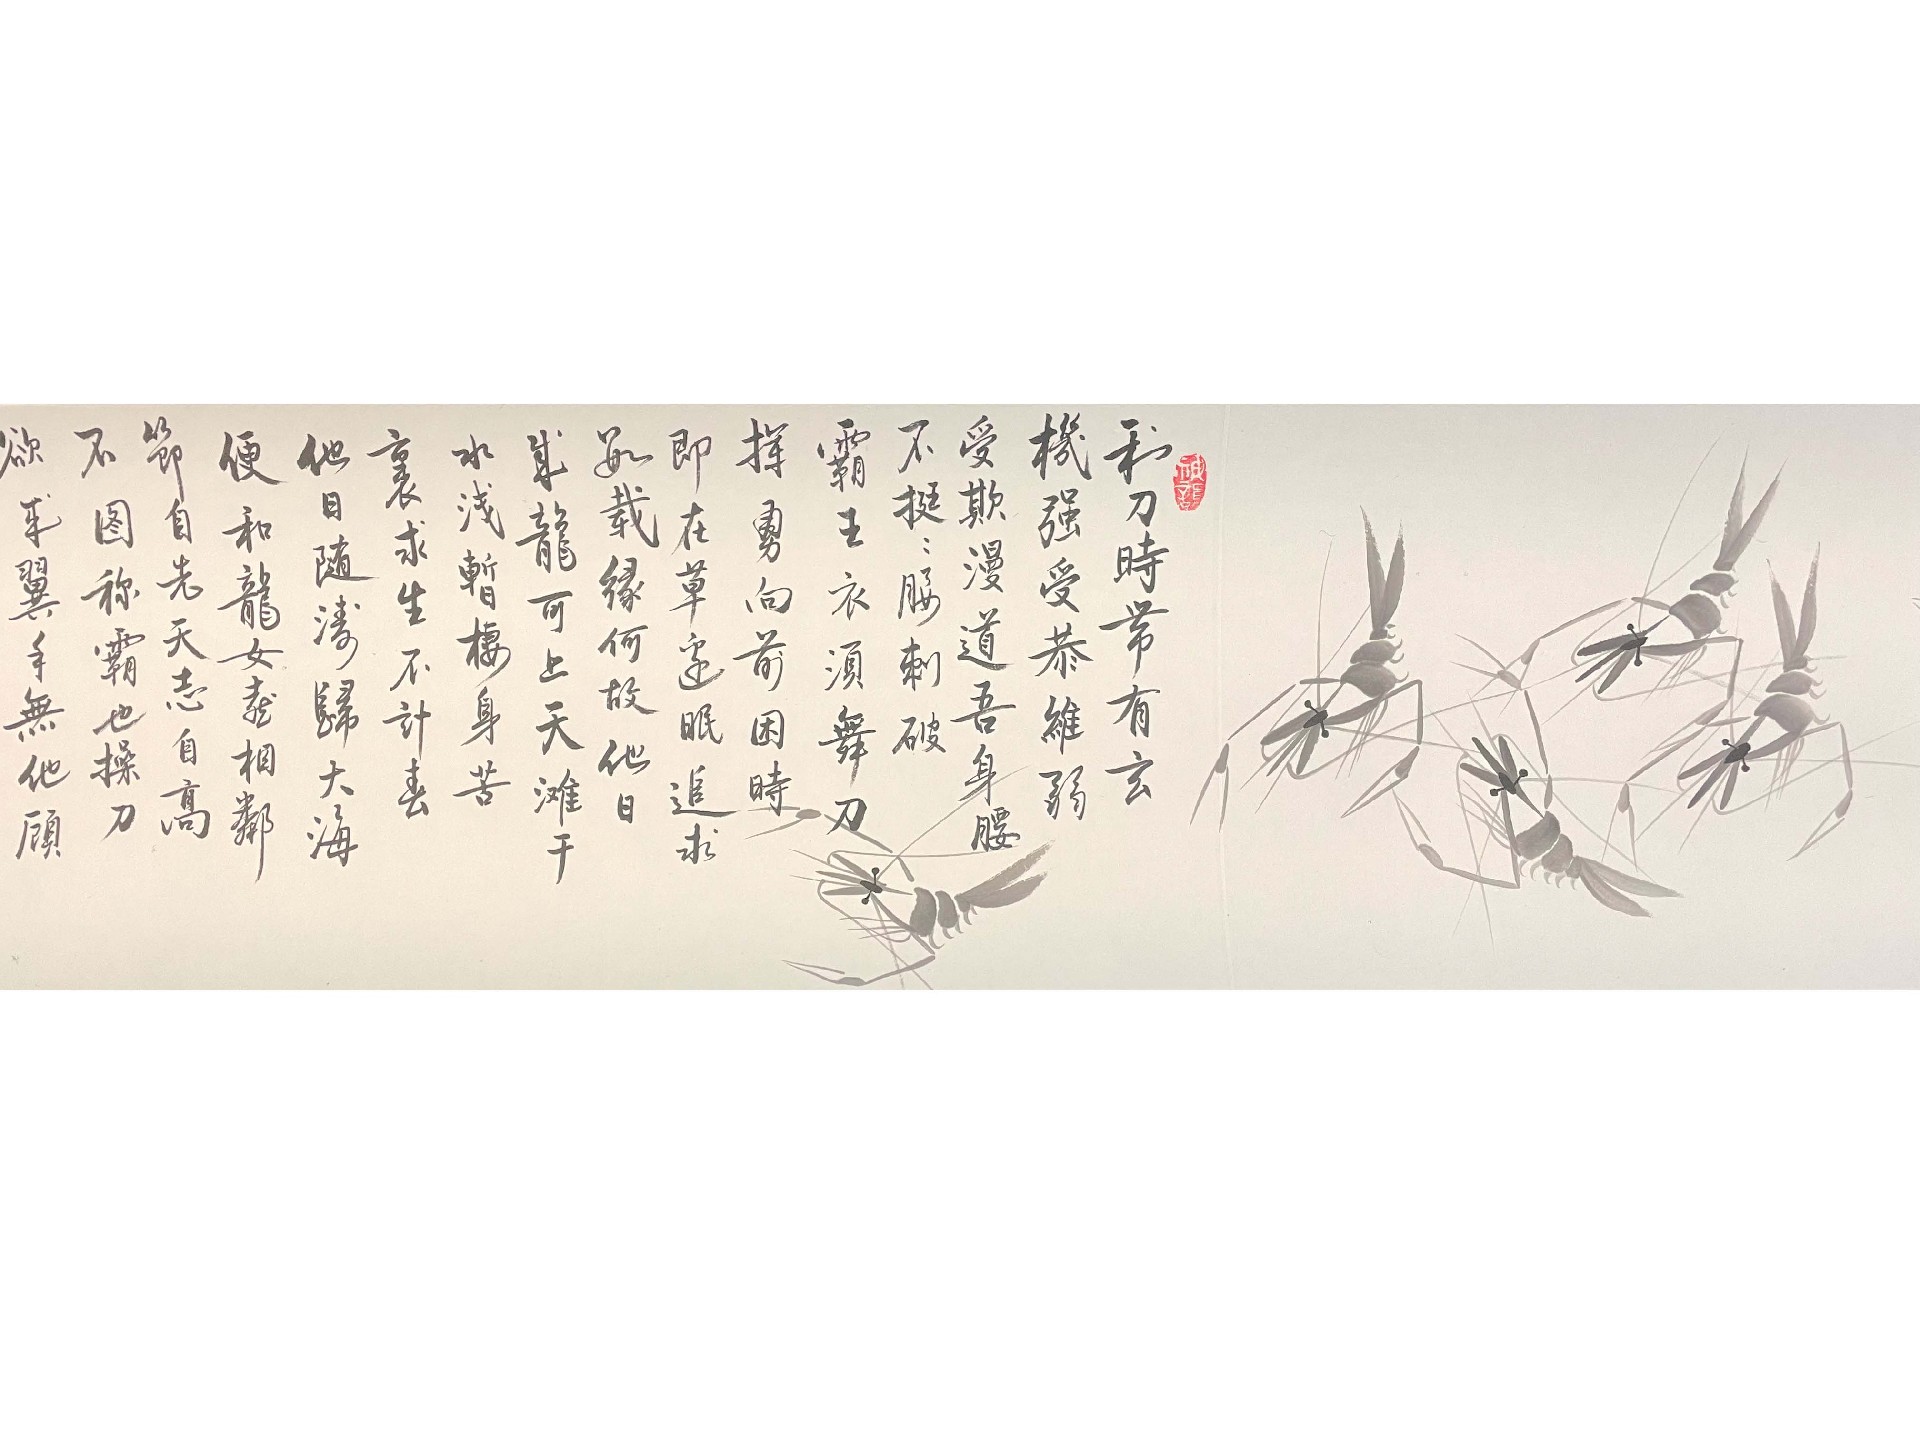 利刀時常有玄
機强受恭維弱
受欺漫道吾身腰
不挺〻腰刺破
霸王衣須舞刀
揮勇向前困時
即在草邊眠追求
數载缘何故他日
成龍可上天滩干
水浅暫棲身苦
裏求生不計春
他日随濤歸大海
便和龍女龍相鄰
節自先天志自高
不图称霸也操刀
欲成翼手無他顾